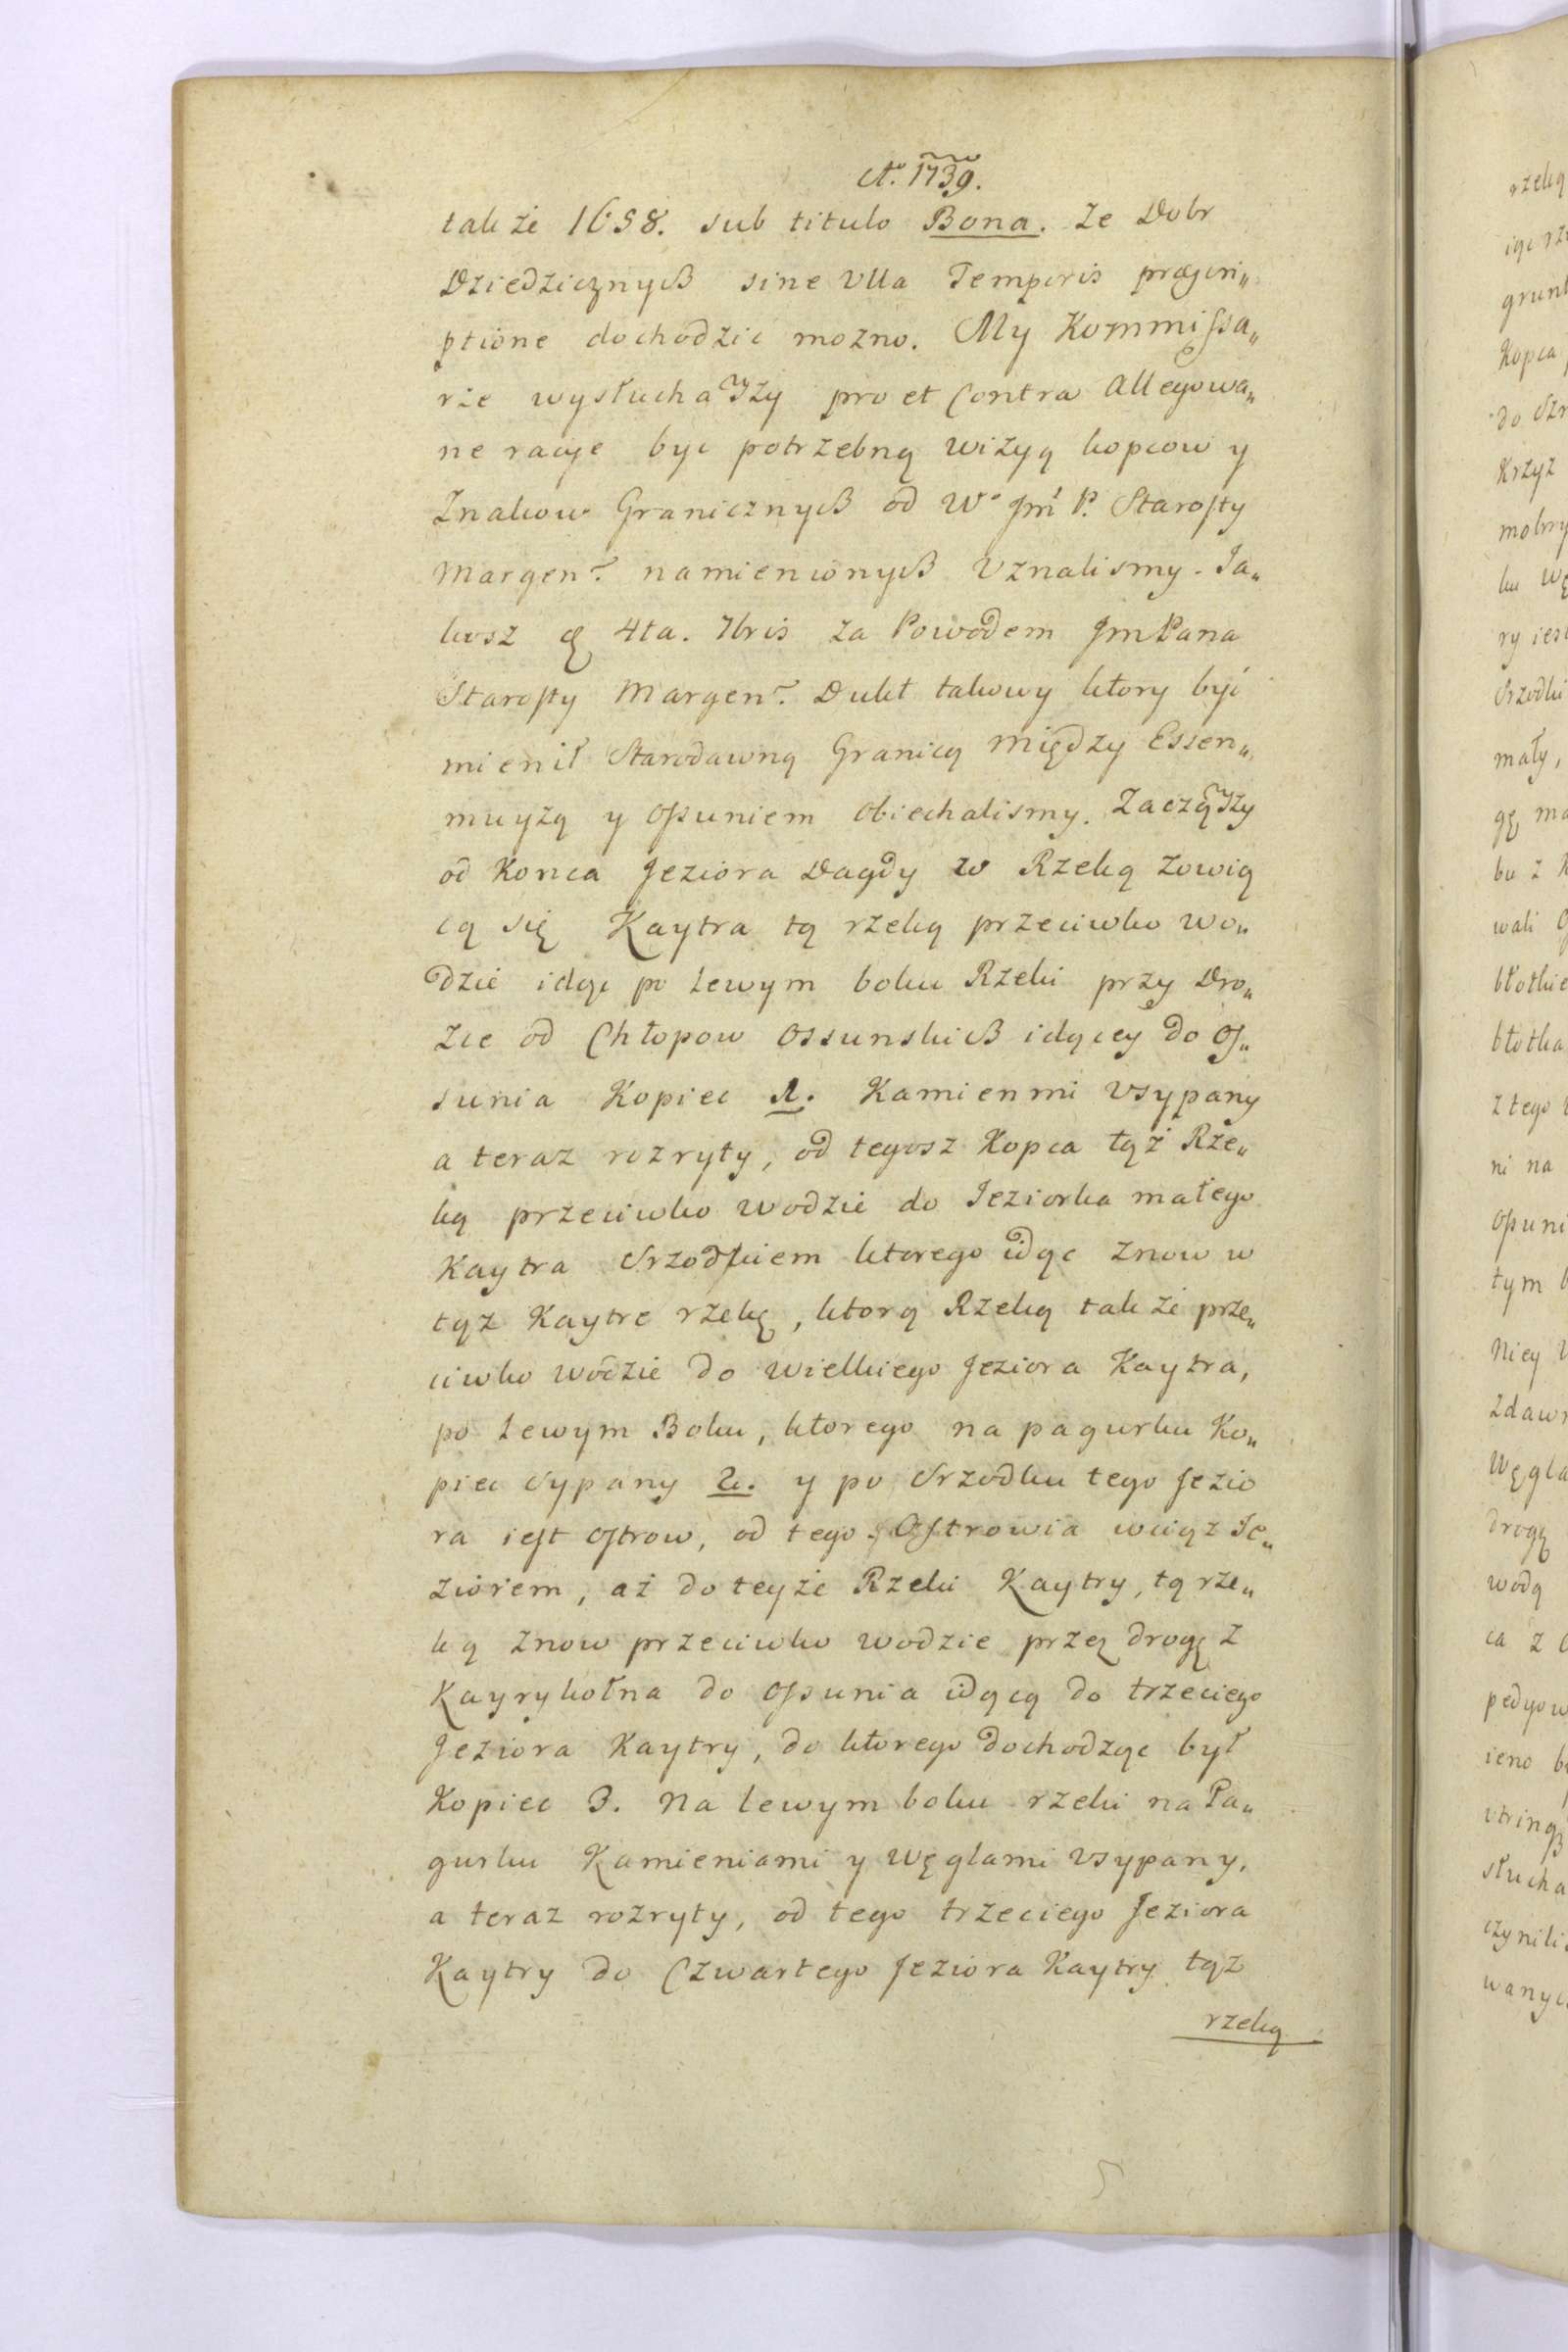 Aº. 1739.
także 1658. sub titulo Bona. Ze Dobr
Dziedzicznych sine Ulla Temporis præscri„
ptione dochodzic mozno. My Kommissa„
rze wysłuchaʃzy pro et Contra Allegowa„
ne racye byc potrzebną wizyą kopcow y
Znakow Granicznych od Wº Jmć P. Starosty
Margen~ namienionych Uznalismy. Ja„
kosz 4ta. 7bris za Powodem Jm Pana
Starosty Margen~ Dukt takowy ktory być
mienił Starodawną Granicą między Essen„
muyzą y Ossuniem obiechalismy. Zacząʃzy
od Konca Jeziora Dagdy w Rzeką zowią
cą się Kaytra tą rzeką przeciwko wo„
dzie idąc po lewym boku Rzeki przy Dro„
ze od Chłopow Ossunskich idącey do Os„
sunia Kopiec 1. Kamienmi Usypany
a teraz rozryty, od tegosz Kopca tąż Rze„
ką przeciwko wodzie do Jeziorka małego
Kaytra Srzodkiem ktorego idąc znow w
tąz Kaytre rzekę, ktorą Rzeką także prze„
ciwko wodzie do wielkiego Jeziora Kaytra,
po lewym Boku, ktorego na pagurku Ko„
piec sypany 2. y po Srzodku tego Jezio
ra iest ostrow, od tego Ostrowia wciąz Je„
ziorem, aż do teyże Rzeki Kaytry, tą rze„
ką znow przeciwko wodzie przez drogę z
Kayrykołna do Ossunia idącą do trzeciego
Jeziora Kaytry, do ktorego dochodząc był
Kopiec 3. Na lewym boku rzeki na Pa„
gurku Kamieniami y Węglami Usypany,
a teraz rozryty, od tego trzeciego Jeziora
Kaytry do Czwartego Jeziora Kaytry tąz
rzeką